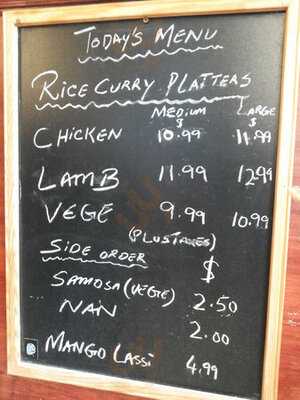 TODAY'S MENU
RICE CURRY PLATTERS
MEDIUM LARGE
$ $
CHICKEN 10.99 11.99
LAMB 11.99 12.99
VEGE 9.99 10.99
(PLUS TAXES)
SIDE ORDER $
SAMOSA (VEGIE) 2.50
NAN 2.00
MANGO LASSi 4.99